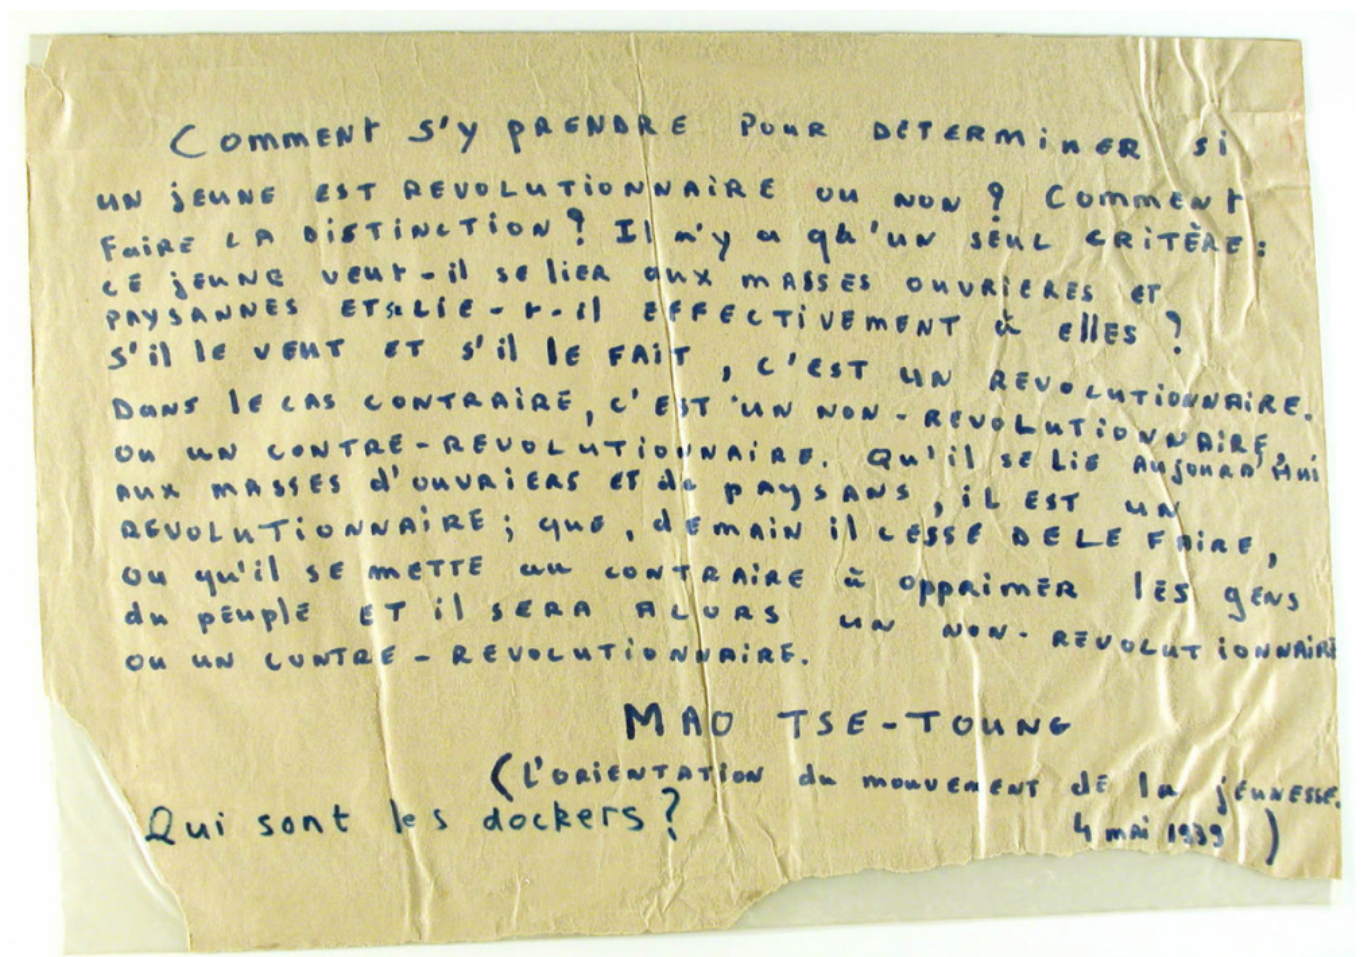 Comment s'y PRENDRE POUR DETERMINER si
UN jEUNE EST REVOLUTIONNAIRE OU NON ? Comment
FAIRE LA DISTINCTION ? Il n'y a qu'un SEUL CRITÈRE :
CE jEUNE veut-il se lier aux MASSES OUVRIERES ET
PAYSANNES ET se LIE-t-il EFFECTIVEMENT à elles ?
S'il le VEUT ET s'il le FAIT, C'EST UN REVOLUTIONNAIRE.
Dans le CAS CONTRAIRE, C'EST UN NON-REVOLUTIONNAIRE,
ou un CONTRE-REVOLUTIONNAIRE. Qu'il se LIE AUJOURD'Hui
aux MASSES d'OUVRIERS ET de PAYSANS, iL EST un
REVOLUTIONNAIRE ; que, dEMAIN il CESSE DE LE FAIRE,
ou qu'il SE METTE au CONTRAIRE à opprimer lES gENS
du pEuplE ET il SERA ALORS un NON-REVOLUTIONNAIRE
ou un CONTRE-REVOLUTIONNAIRE.
MAO TSE-TOUNG
(L'ORIENTATION du mouvement de la jEUNESSE.
4 mai 1939)
Qui sont les dockers ?